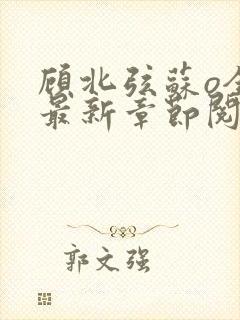 顾北弦苏o全
最新章节阅
郭文强